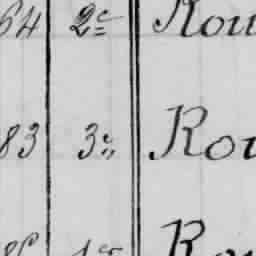 64 2e Rou
83 3e Rou
86 1er Rou